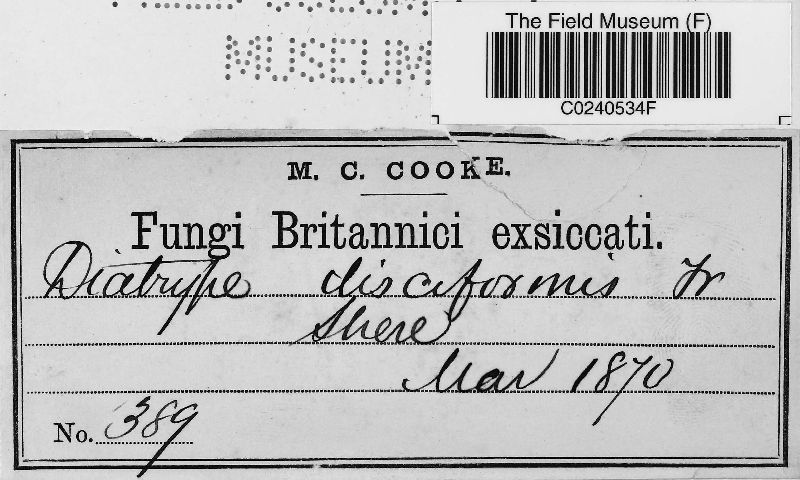 MUSEUM
The Field Museum (F)
C0240534F
M. C. COOKE.
Fungi Britannici exsiccati.
Diatrype disciformis Fr
Shere
Mar 1870
No. 389